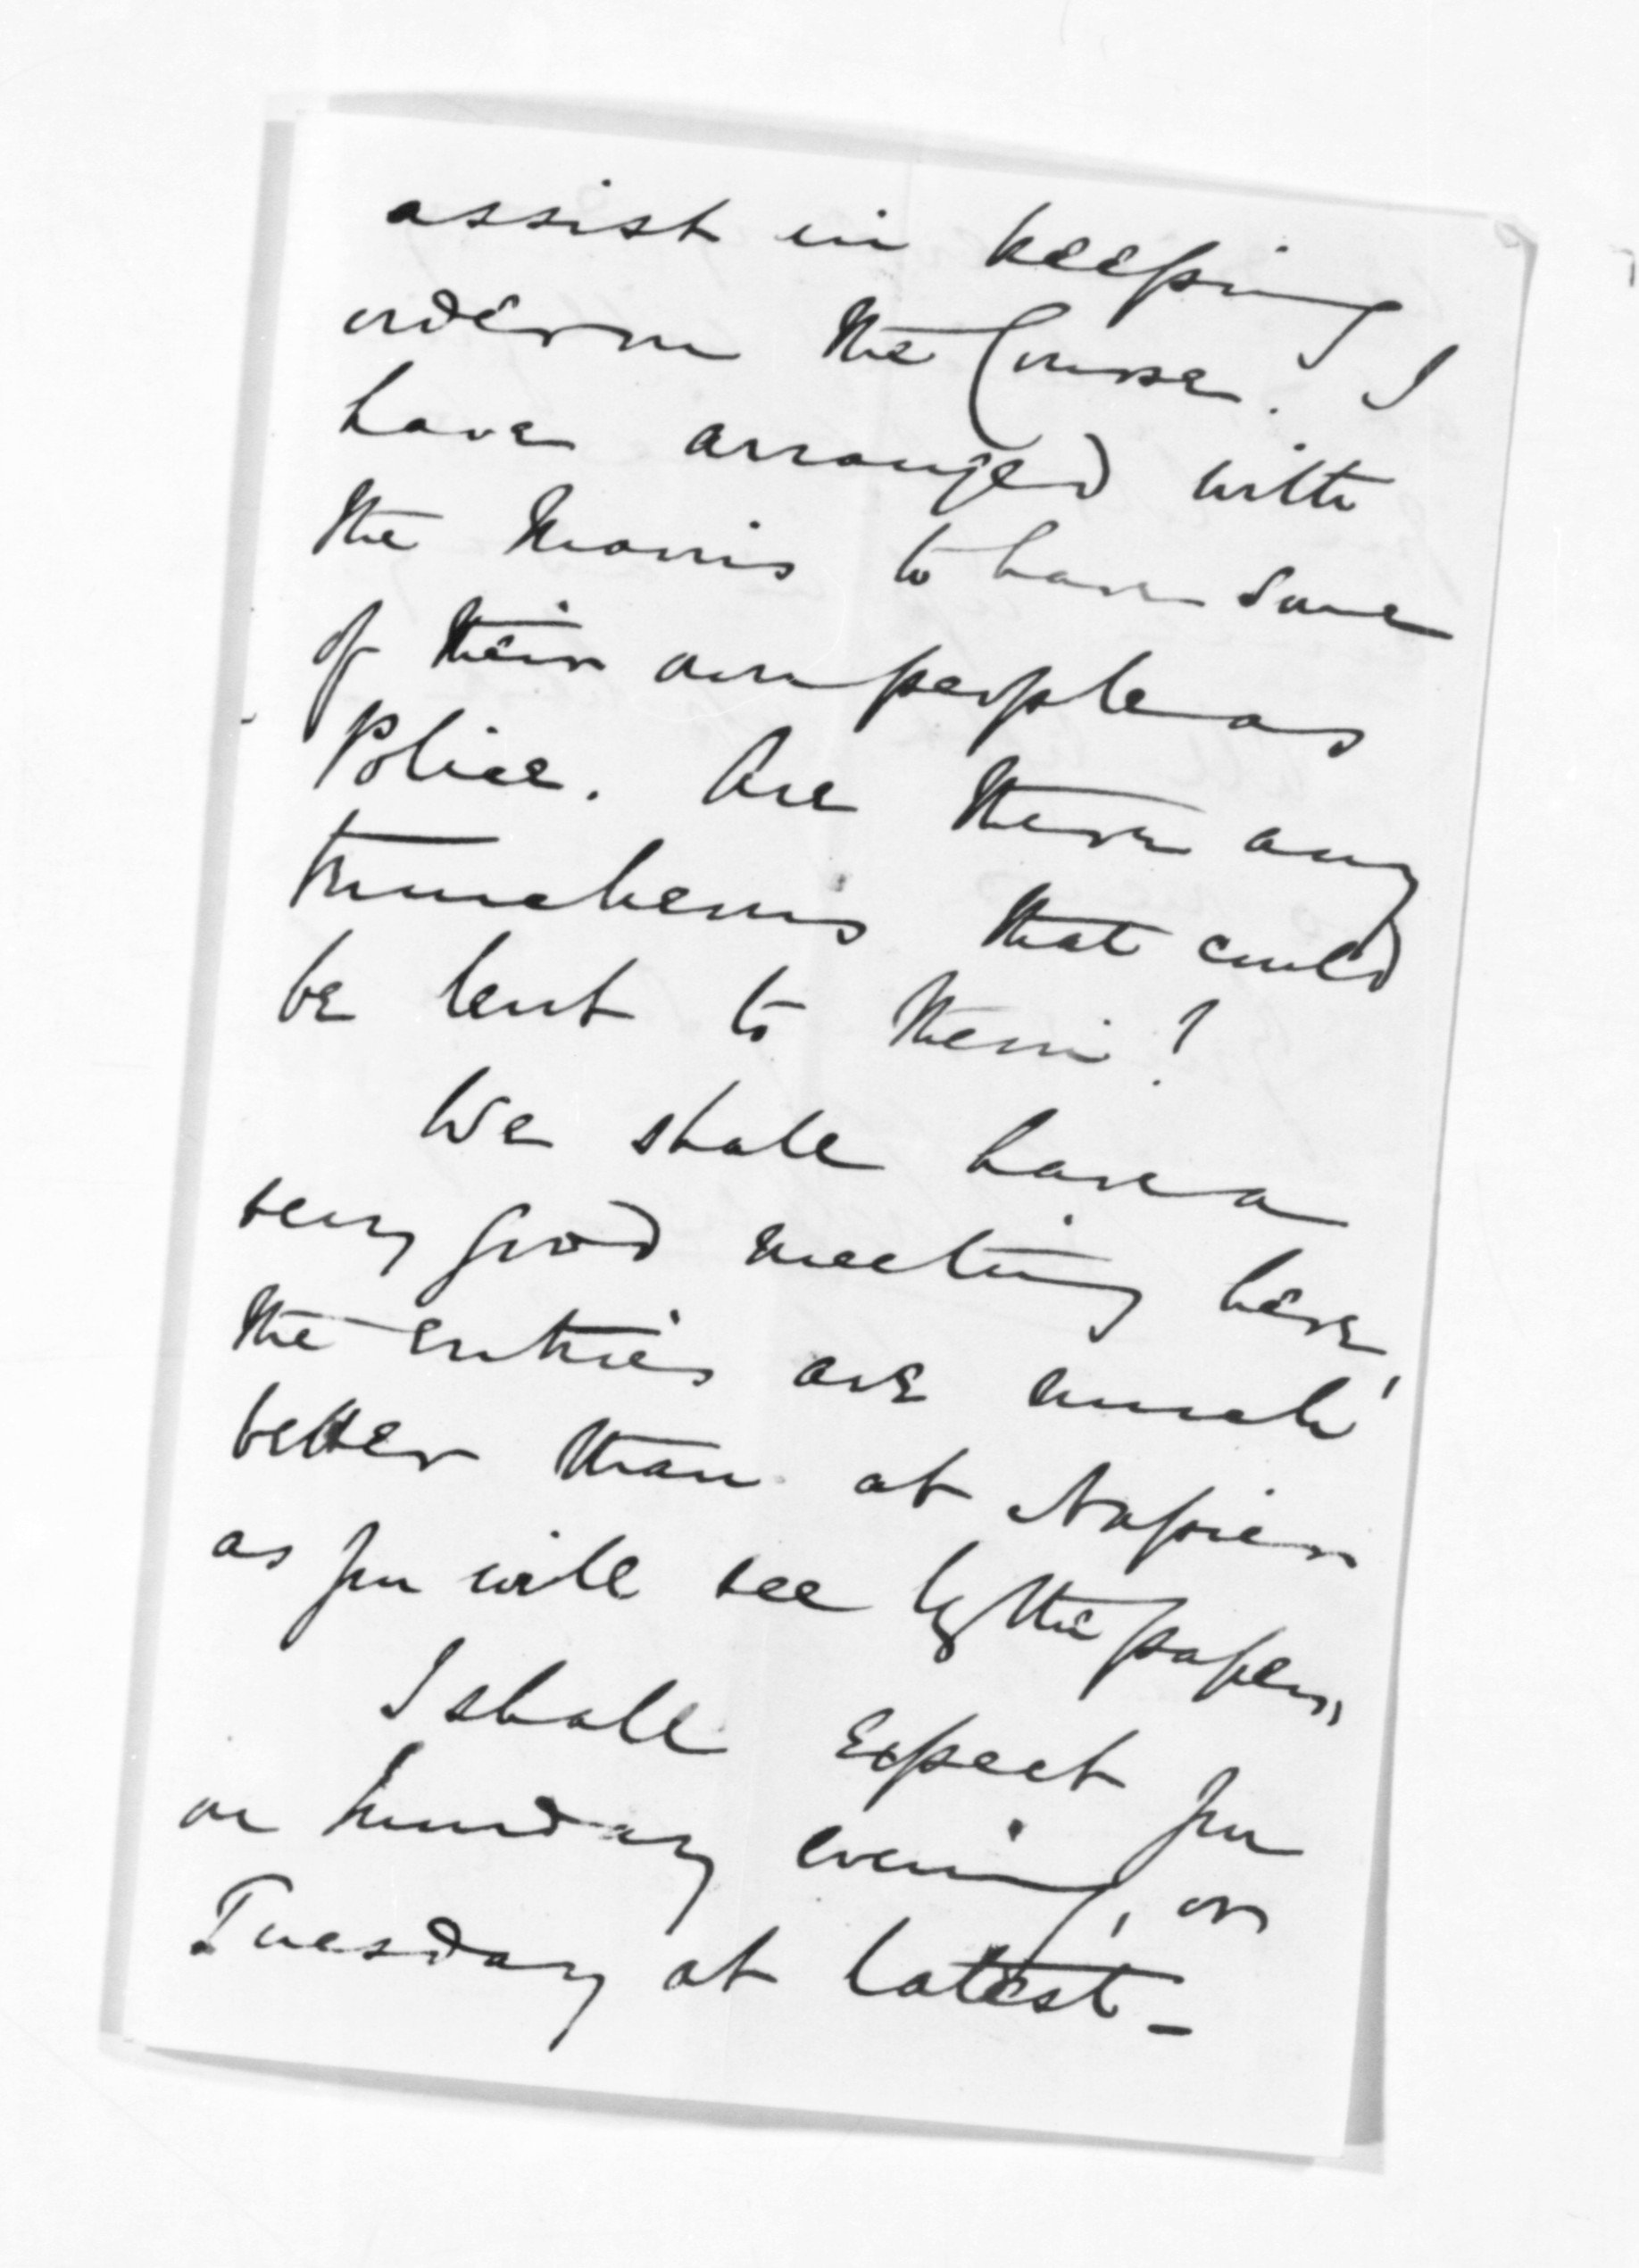 assist in keeping
order on the Course. I
have arranged with
the Maoris to have some
of their own people as
Police. Are there any
truncheons that could
be lent to them?
We shall have a
very good meeting here,
the entries are much
better than at Napier
as you will see by the papers,
I shall expect you
on Monday evening, or
Tuesday at latest_